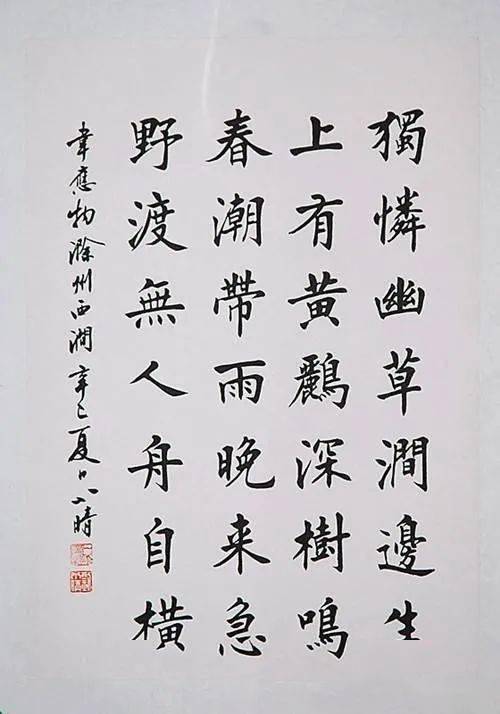 獨憐幽草澗邊生
上有黃鸝深樹鳴
春潮帶雨晚来急
野渡無人舟自橫
韋應物滁州西澗辛巳夏日晴